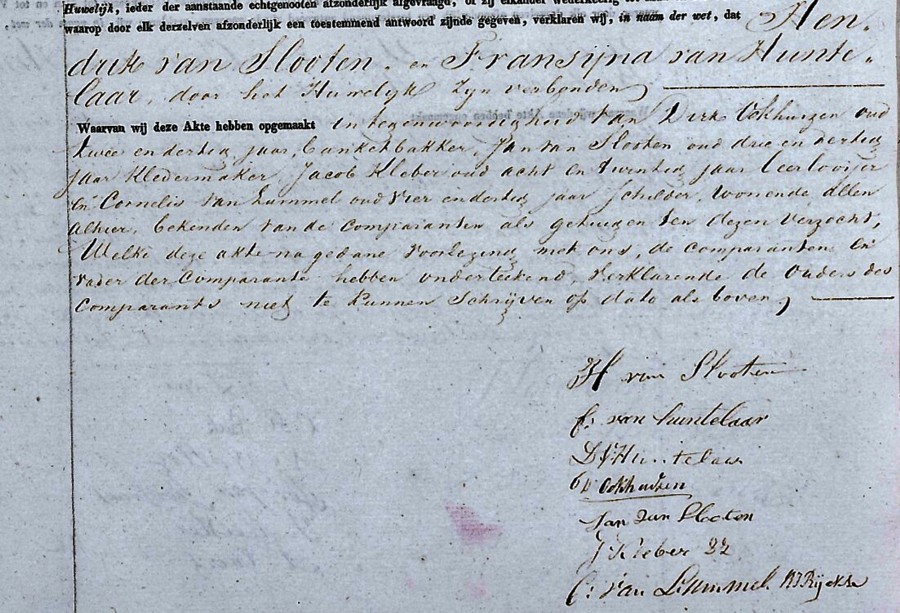 Huwelijk, ieder der aanstaande echtgenooten afzonderlijk afgevraagd, of zij elkander wederkeerig tot
waarop door elk derzelven afzonderlijk een toestemmend antwoord zijnde gegeven, verklaren wij, in naam der wet, dat Hen-
drik van Slooten. en Fransijna van Hunte-
laar, door het Huwelijk zijn verbonden,
Waarvan wij deze Akte hebben opgemaakt in tegenwoordigheid van Dirk Okhuizen oud
twee en dertig jaar, banketbakker, Jan van Slooten oud drie en dertig
jaar Kledermaker, Jacob Kleber oud acht en twintig jaar leerlooijer
en Cornelis van Lummel oud vier en dertig jaar schilder, wonende allen
alhier, bekenden van de Comparanten als getuigen ten dezen verzocht,
Welke deze akte na gedane voorlezing met ons, de comparanten en
vader der Comparante hebben onderteekend, verklarende de ouders des
Comparants niet te kunnen Schrijven op data als boven,
H van Slooten
F: van Huntelaar
D V Huntelaar
Okhuizen
Jan van Slooten
J Kleber
C: van Lummel